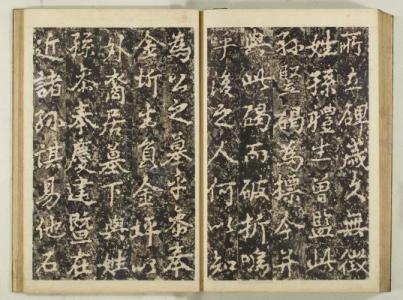 所立碑歲久無徵
姓孫禮生曾監此
縣竪碣為標今并
與此碣而破折嗟
乎後之人何以知
為公之墓乎參奉
金圻生員金坪以
外裔居墓下與姓
孫參奉慶建暨在
近諸孫謀易他石